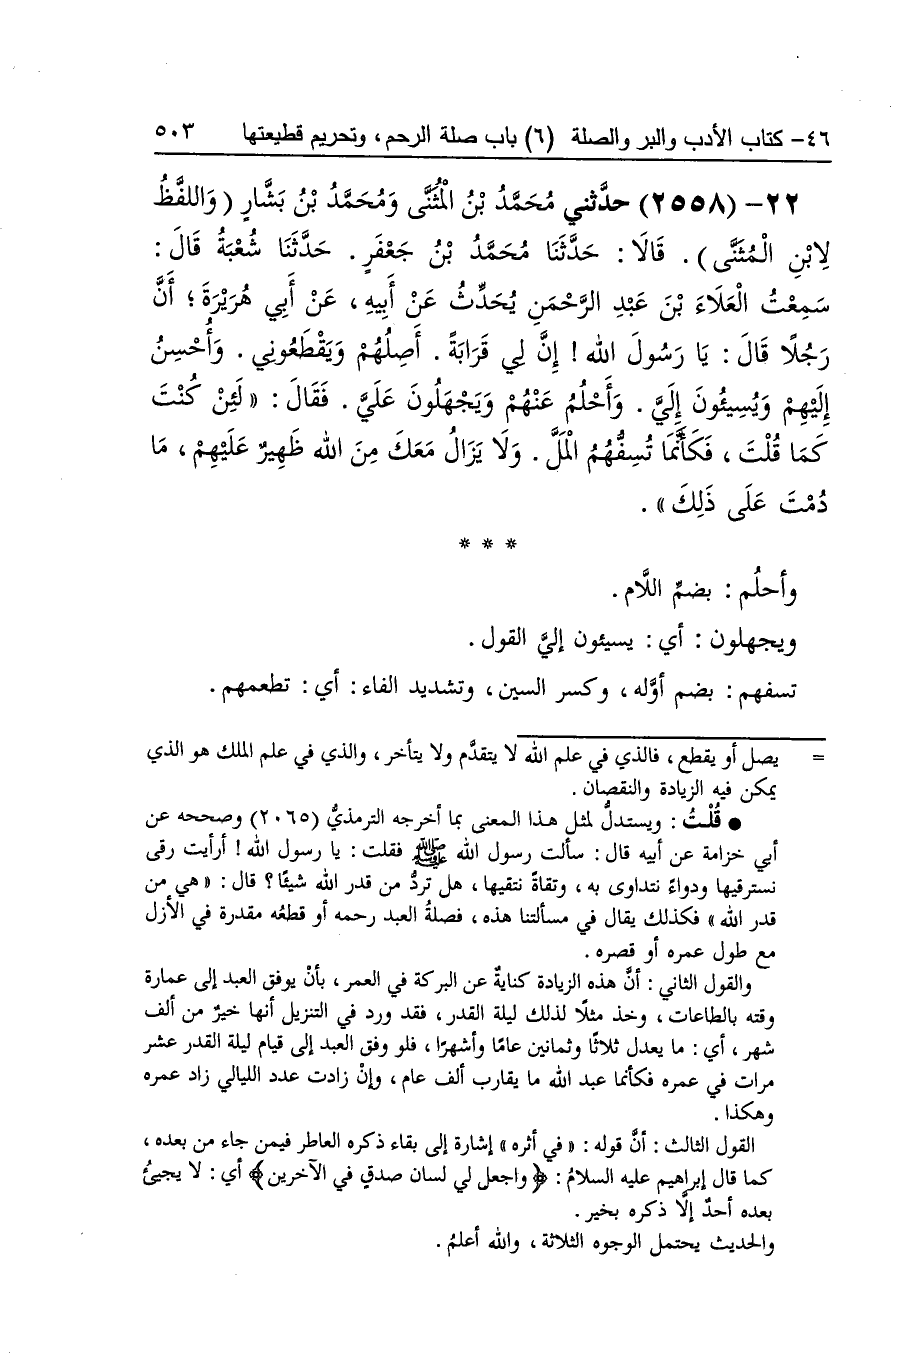 ٤٦- كتاب الأدب والبر والصلة (٦) باب صلة الرحم، وتحريم قطيعتها ٥٠٣
٢٢- (٢٥٥٨) حدَّثني مُحَمَّدُ بْنُ الْمُثَنَّى وَمُحَمَّدُ بْنُ بَشَّارٍ (وَاللَّفْظُ
لِابْنِ الْمُثَنَّى). قَالَا: حَدَّثَنَا مُحَمَّدُ بْنُ جَعْفَرٍ. حَدَّثَنَا شُعْبَةُ قَالَ:
سَمِعْتُ الْعَلَاءَ بْنَ عَبْدِ الرَّحْمَنِ يُحَدِّثُ عَنْ أَبِيهِ، عَنْ أَبِي هُرَيْرَةَ؛ أَنَّ
رَجُلًا قَالَ: يَا رَسُولَ الله! إِنَّ لِي قَرَابَةً. أَصِلُهُمْ وَيَقْطَعُونِي. وَأُحْسِنُ
إِلَيْهِمْ وَيُسِيئُونَ إِلَيَّ. وَأَحْلُمُ عَنْهُمْ وَيَجْهَلُونَ عَلَيَّ. فَقَالَ: «لَئِنْ كُنْتَ
كَمَا قُلْتَ، فَكَأَنَّمَا تُسِفُّهُمُ الْمَلَّ. وَلَا يَزَالُ مَعَكَ مِنَ الله ظَهِيرٌ عَلَيْهِمْ، مَا
دُمْتَ عَلَى ذَلِكَ».
* * *
وأحلُم: بضمِّ اللَّام.
ويجهلون: أي: يسيئون إليَّ القول.
تسفهم: بضم أوَّله، وكسر السين، وتشديد الفاء: أي: تطعمهم.
= يصل أو يقطع، فالذي في علم الله لا يتقدَّم ولا يتأخر، والذي في علم الملك هو الذي
يمكن فيه الزيادة والنقصان.
● قُلْتُ: ويستدلُّ لمثل هذا المعنى بما أخرجه الترمذيُّ (٢٠٦٥) وصححه عن
أبي خزامة عن أبيه قال: سألت رسول الله ﷺ فقلت: يا رسول الله! أرأيت رقى
نسترقيها ودواءً نتداوى به، وتقاةً نتقيها، هل تردُّ من قدر الله شيئًا؟ قال: «هي من
قدر الله» فكذلك يقال في مسألتنا هذه، فصلةُ العبد رحمه أو قطعُه مقدرة في الأزل
مع طول عمره أو قصره.
والقول الثاني: أنَّ هذه الزيادة كنايةٌ عن البركة في العمر، بأنْ يوفق العبد إلى عمارة
وقته بالطاعات، وخذ مثلًا لذلك ليلة القدر، فقد ورد في التنزيل أنها خيرٌ من ألف
شهر، أي: ما يعدل ثلاثًا وثمانين عامًا وأشهرًا، فلو وفق العبد إلى قيام ليلة القدر عشر
مرات في عمره فكأنما عبد الله ما يقارب ألف عام، وإنْ زادت عدد الليالي زاد عمره
وهكذا.
القول الثالث: أنَّ قوله: «في أثره» إشارة إلى بقاء ذكره العاطر فيمن جاء من بعده،
كما قال إبراهيم عليه السلامُ: ﴿واجعل لي لسان صدقٍ في الآخرين﴾ أي: لا يجيئُ
بعده أحدٌ إلَّا ذكره بخير.
والحديث يحتمل الوجوه الثلاثة، والله أعلمُ.